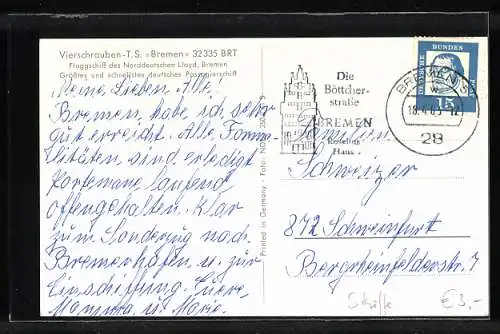 Vierschrauben-T.S. »Bremen« 32335 BRT
Flaggschiff des Norddeutschen Lloyd, Bremen
Größtes und schnellstes deutsches Passagierschiff
Meine Lieben. Alle,
Bremen habe ich sehr
gut erreicht. Alle Forma-
litäten sind erledigt
Portemane laufend
offengehalten. Klar
zum Sonderzug nach
Bremerhafen u. zur
Einschiffung. Euere
u. Marie.
Printed in Germany · Foto: NDL
Die
Böttcher-
straße
BREMEN
Roselius
Haus
DEUTSCHE BUNDESPOST
15
BREMEN 5
28
Familien
Schweizer
872 Schweinfurt
Bergrheinfelderstr. 7
Schiffe
€ 3.-